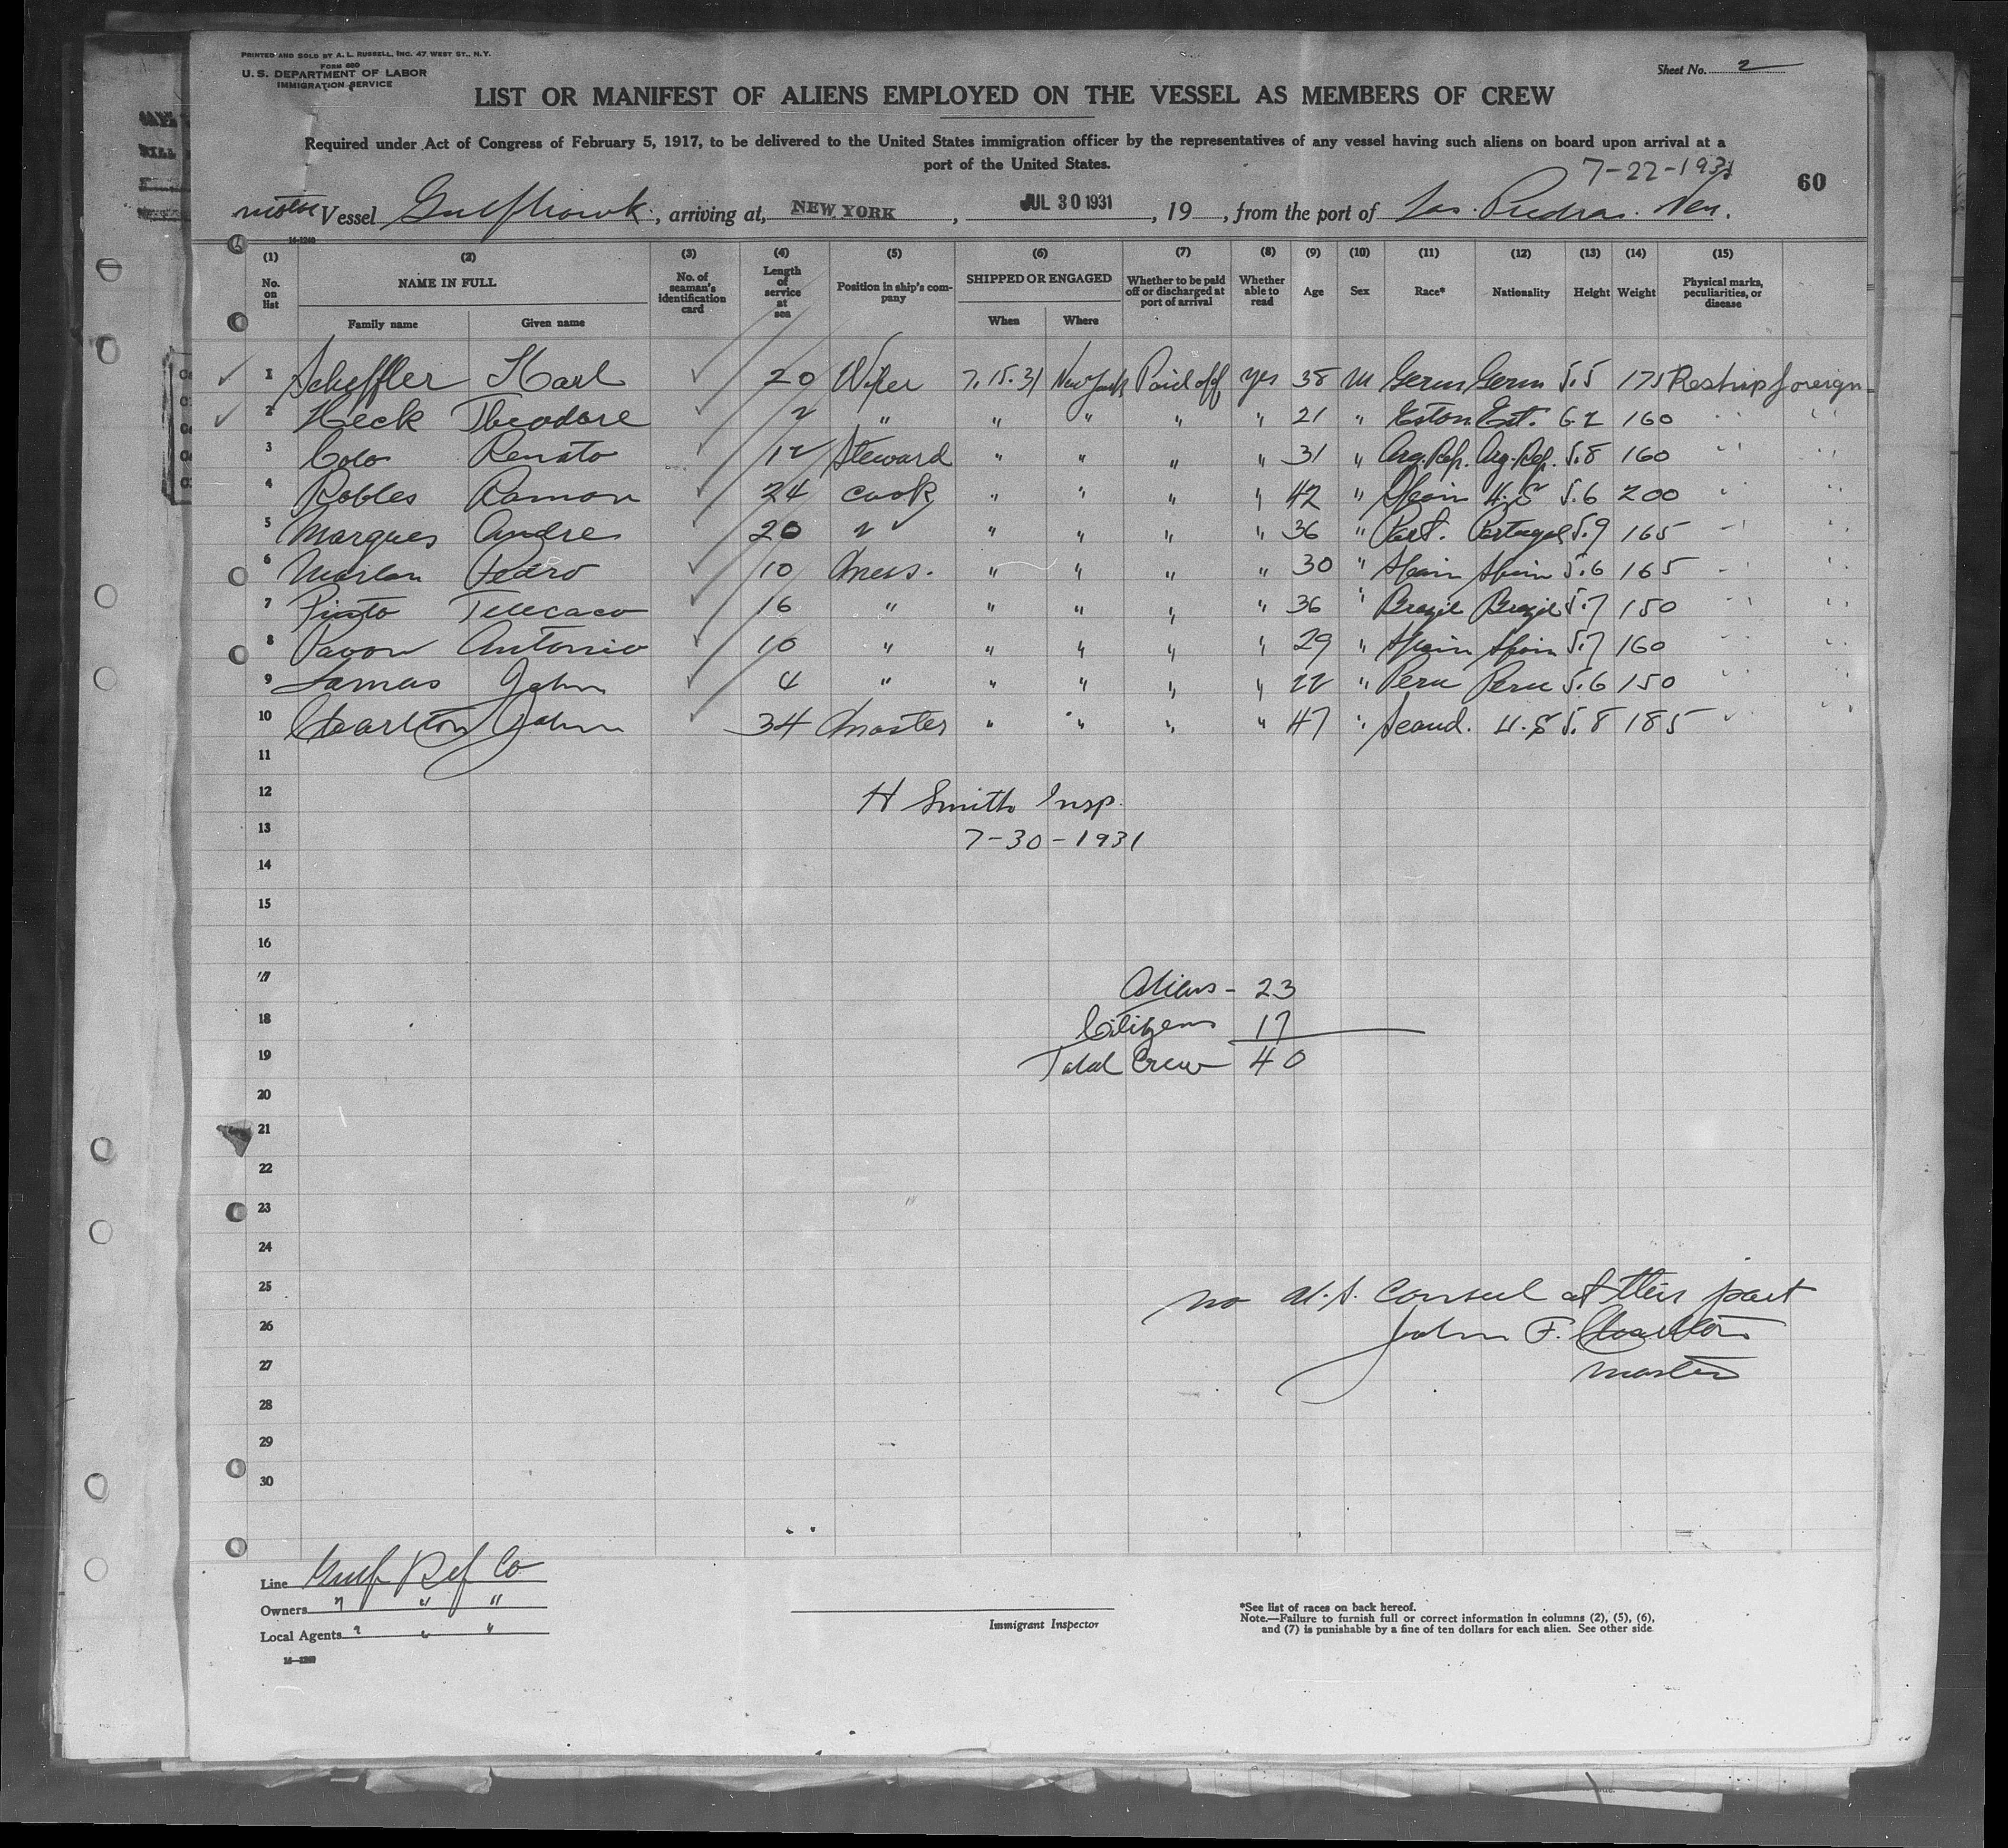 PRINTED AND SOLD BY A. L. RUSSELL, INC. 47 WEST ST., N.Y.
FORM 680
U. S. DEPARTMENT OF LABOR
IMMIGRATION SERVICE
Sheet No. 2
LIST OR MANIFEST OF ALIENS EMPLOYED ON THE VESSEL AS MEMBERS OF CREW
Required under Act of Congress of February 5, 1917, to be delivered to the United States immigration officer by the representatives of any vessel having such aliens on board upon arrival at a
port of the United States.
7-22-1931
60
Vessel Gulfhawk, arriving at, NEW YORK, JUL 30 1931, 19, from the port of Las Piedras. Ven.
14-1240
(1) (2) (3) (4) (5) (6) (7) (8) (9) (10) (11) (12) (13) (14) (15)
No. on list NAME IN FULL Family name Given name No. of seaman's identification card Length of service at sea Position in ship's company SHIPPED OR ENGAGED When Where Whether to be paid off or discharged at port of arrival Whether able to read Age Sex Race* Nationality Height Weight Physical marks, peculiarities, or disease
✓ 1 Scheffler Karl ✓ 20 Wiper 7.15.31 New York Paid off yes 38 M Germ Germ 5.5 175 Reship foreign
✓ 2 Heck Theodore ✓ 2 " " " " " 21 " Eston Est. 6.2 160 " "
3 Colo Renato ✓ 12 Steward " " " " 31 " Arg. Rep. Arg. Rep. 5.8 160 " "
4 Robles Ramon ✓ 24 Cook " " " " 42 " Spain U.S 5.6 200 " "
5 Marques Andre ✓ 20 " ✓ " " " " 36 " Port. Portugal 5.9 165 " "
6 Pedro ✓ 10 Mess. " " " " 30 " Spain Spain 5.6 165 " "
7 Pinto ✓ 16 " " " " " 36 " Brazil Brazil 5.7 150 " "
8 Pavon Antonio ✓ 10 " " " " " 29 " Spain Spain 5.7 160 " "
9 Lamas John ✓ 4 " " " " " 22 " Peru Peru 5.6 150 " "
10 Charlton John ✓ 34 Master " " " " 47 " Scand. U.S 5.8 185 " "
11
12
H Smith Insp.
13
7-30-1931
14
15
16
17
Aliens - 23
18
Citizens 17
19
Total Crew 40
20
21
22
23
24
25
no U.S. Consul at this port
26
John F. Charlton
27
Master
28
29
30
Line Gulf Ref Co
Owners " " "
Local Agents " " "
14-1240
Immigrant Inspector
*See list of races on back hereof.
Note.—Failure to furnish full or correct information in columns (2), (5), (6),
and (7) is punishable by a fine of ten dollars for each alien. See other side.